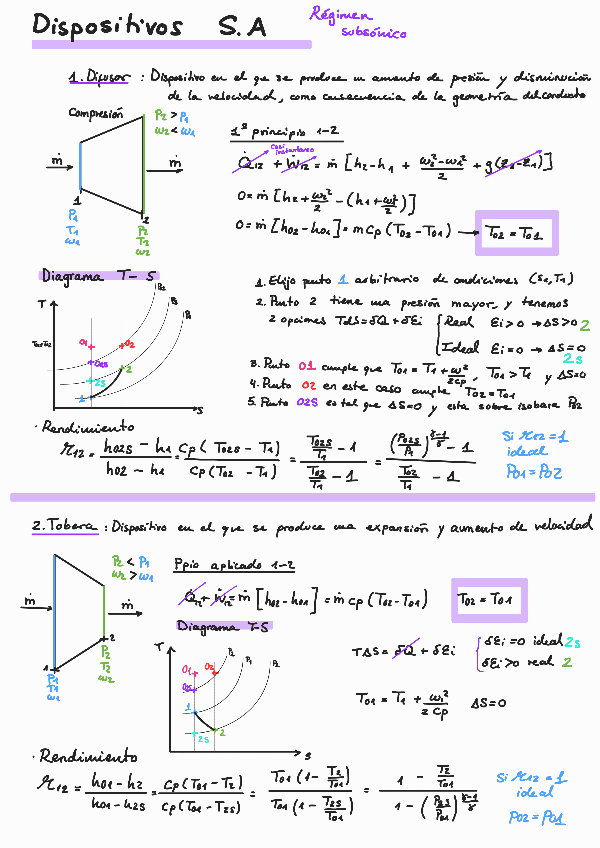 Dispositivos S.A
Régimen
subsónico
1. Difusor : Dispositivo en el que se produce un aumento de presión y disminución
de la velocidad, como causecuencia de la geometría del conducto
Compresión
P2 > P1
w2 < w1
ṁ
ṁ
1
P1
T1
w1
2
P2
T2
w2
1º principio 1-2
Casi
instantáneo
Q̇12 + Ẇ12 = ṁ [h2-h1 + (w2²-w1²)/2 + g(z2-z1)]
0 = ṁ [h2 + w2²/2 - (h1 + w1²/2)]
0 = ṁ [h02 - h01] = ṁ Cp (T02 - T01) → T02 = T01
Diagrama T-S
T
T01=T02
01
02
02s
2s
2
1
P02
P2
P1
s
1. Elijo punto 1 arbitrario de condiciones (S1, T1)
2. Punto 2 tiene una presión mayor y tenemos
2 opciones TdS = δQ + δEi
Real Ei > 0 → ΔS > 0 2
Ideal Ei = 0 → ΔS = 0
2s
3. Punto 01 cumple que T01 = T1 + w²/2Cp, T01 > T1 y ΔS=0
4. Punto 02 en este caso cumple T02 = T01
5. Punto 02S es tal que ΔS=0 y esta sobre isobara P02
· Rendimiento
η12 = (h02s - h1)/(h02 - h1) = Cp (T02s - T1)/Cp (T02 - T1) = (T02s/T1 - 1)/(T02/T1 - 1) = ((P02s/P1)^((γ-1)/γ) - 1)/(T02/T1 - 1)
Si η12 = 1
ideal
P01 = P02
2. Tobera : Dispositivo en el que se produce una expansión y aumento de velocidad
P2 < P1
w2 > w1
ṁ
ṁ
1
P1
T1
w1
2
P2
T2
w2
Ppio aplicado 1-2
Q̇12 + Ẇ12 = ṁ [h02 - h01] = ṁ Cp (T02 - T01)
T02 = T01
Diagrama T-S
T
01
02
1
2s
2
P1
s
TΔS = δQ + δEi
δEi = 0 ideal 2s
δEi > 0 real 2
T01 = T1 + w1²/2Cp ΔS=0
· Rendimiento
η12 = (h01 - h2)/(h01 - h2s) = Cp (T01 - T2)/Cp (T01 - T2s) = T01 (1 - T2/T01)/T01 (1 - T2s/T01) = (1 - T2/T01)/(1 - (P2s/P01)^((γ-1)/γ))
Si η12 = 1
ideal
P02 = P01